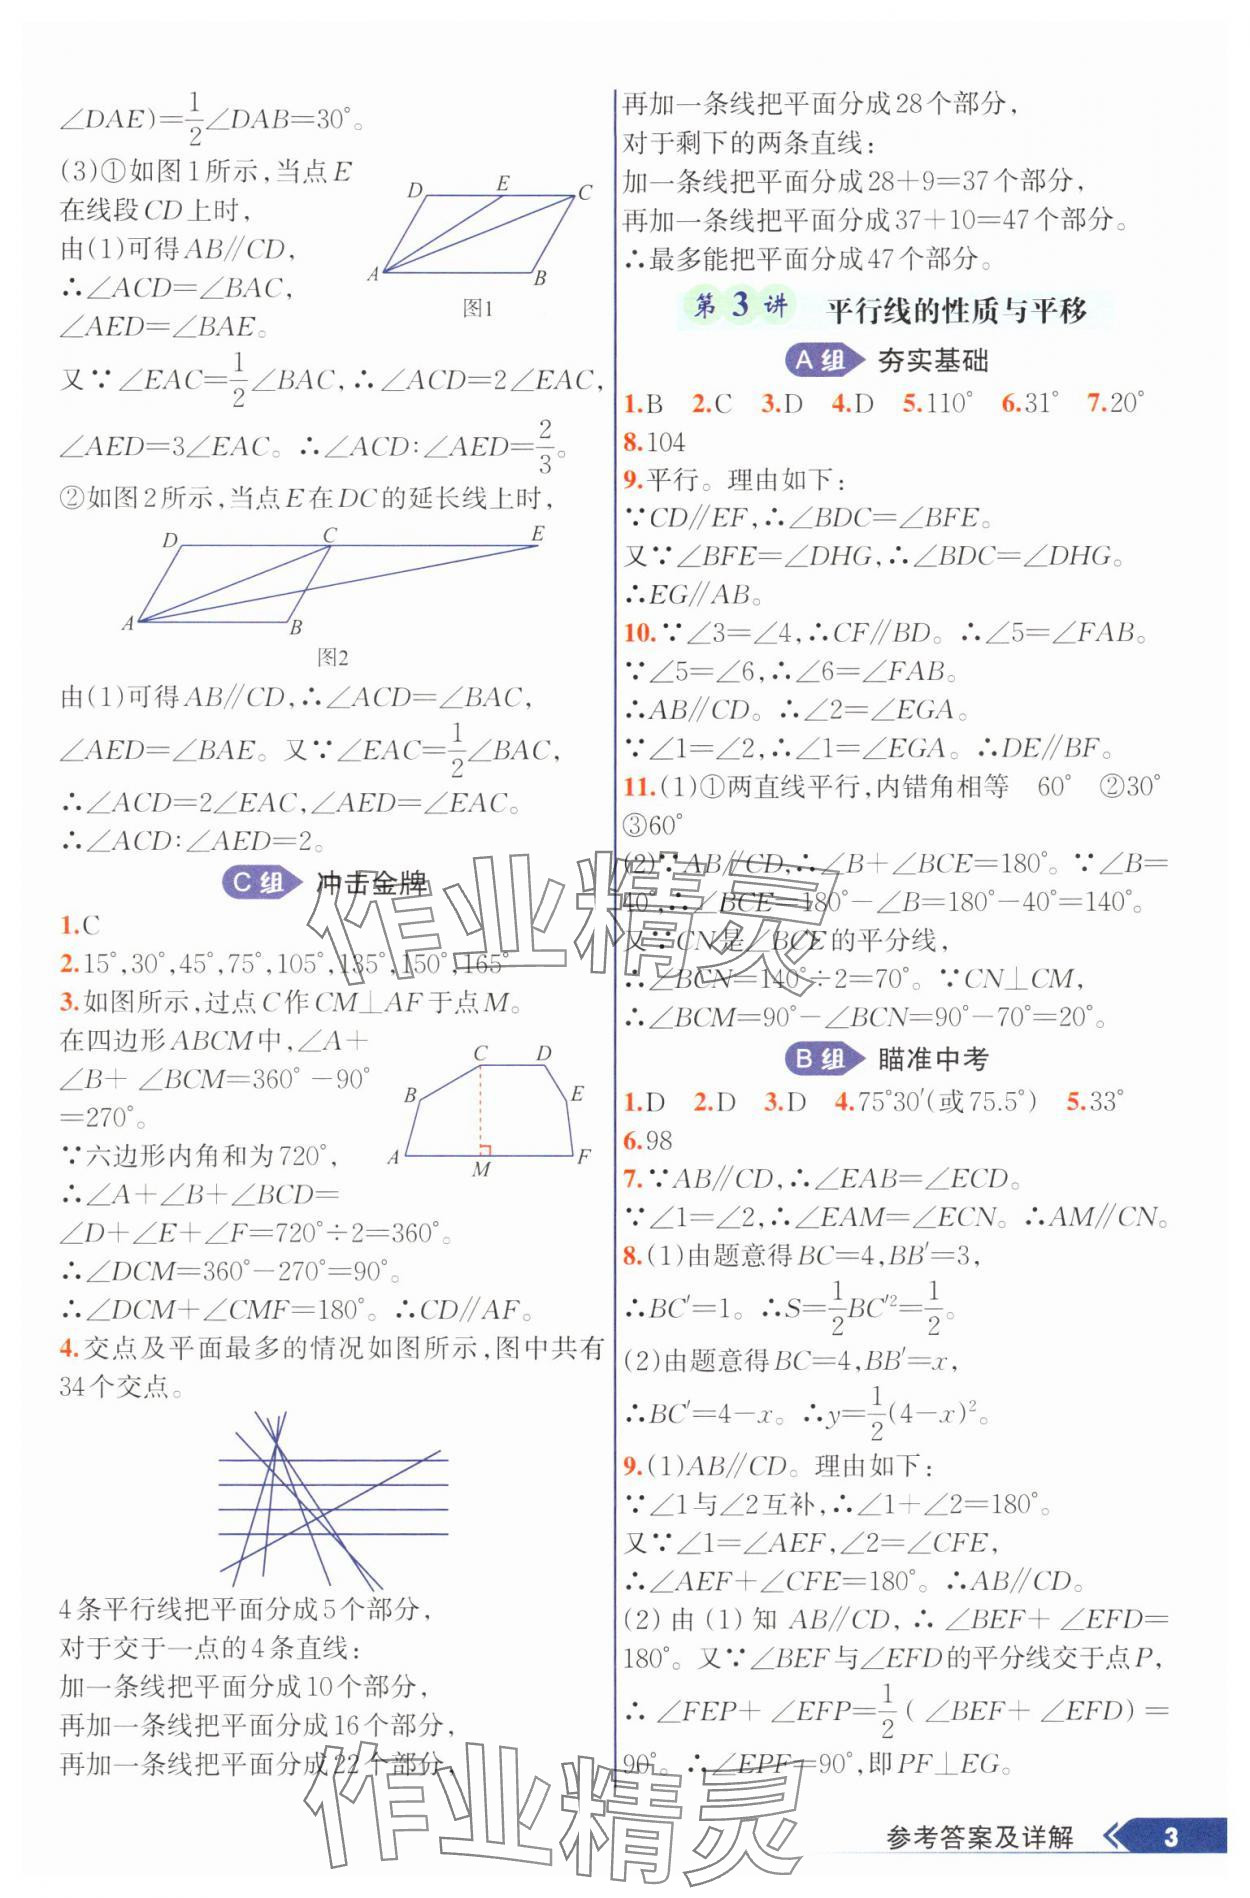 ∠DAE)=1/2∠DAB=30°。
(3)①如图1所示,当点E
在线段CD上时,
由(1)可得AB∥CD,
∴∠ACD=∠BAC,
∠AED=∠BAE。
D E C
A B
图1
又∵∠EAC=1/2∠BAC,∴∠ACD=2∠EAC,
∠AED=3∠EAC。∴∠ACD:∠AED=2/3。
②如图2所示,当点E在DC的延长线上时,
D C E
A B
图2
由(1)可得AB∥CD,∴∠ACD=∠BAC,
∠AED=∠BAE。又∵∠EAC=1/2∠BAC,
∴∠ACD=2∠EAC,∠AED=∠EAC。
∴∠ACD:∠AED=2。
C组 冲击金牌
1.C
2.15°,30°,45°,75°,105°,135°,150°,165°
3.如图所示,过点C作CM⊥AF于点M。
在四边形ABCM中,∠A+
∠B+∠BCM=360°-90°
=270°。
∵六边形内角和为720°,
∴∠A+∠B+∠BCD=
C D
B E
A M F
∠D+∠E+∠F=720°÷2=360°。
∴∠DCM=360°-270°=90°。
∴∠DCM+∠CMF=180°。∴CD∥AF。
4.交点及平面最多的情况如图所示,图中共有
34个交点。
4条平行线把平面分成5个部分,
对于交于一点的4条直线:
加一条线把平面分成10个部分,
再加一条线把平面分成16个部分,
再加一条线把平面分成22个部分,
再加一条线把平面分成28个部分,
对于剩下的两条直线:
加一条线把平面分成28+9=37个部分,
再加一条线把平面分成37+10=47个部分。
∴最多能把平面分成47个部分。
第3讲 平行线的性质与平移
A组 夯实基础
1.B 2.C 3.D 4.D 5.110° 6.31° 7.20°
8.104
9.平行。理由如下:
∵CD∥EF,∴∠BDC=∠BFE。
又∵∠BFE=∠DHG,∴∠BDC=∠DHG。
∴EG∥AB。
10.∵∠3=∠4,∴CF∥BD。∴∠5=∠FAB。
∵∠5=∠6,∴∠6=∠FAB。
∴AB∥CD。∴∠2=∠EGA。
∵∠1=∠2,∴∠1=∠EGA。∴DE∥BF。
11.(1)①两直线平行,内错角相等 60° ②30°
③60°
(2)∵AB∥CD,∴∠B+∠BCE=180°。∵∠B=
40°,∴∠BCE=180°-∠B=180°-40°=140°。
又∵CN是∠BCE的平分线,
∴∠BCN=140°÷2=70°。∵CN⊥CM,
∴∠BCM=90°-∠BCN=90°-70°=20°。
B组 瞄准中考
1.D 2.D 3.D 4.75°30′(或75.5°) 5.33°
6.98
7.∵AB∥CD,∴∠EAB=∠ECD。
∵∠1=∠2,∴∠EAM=∠ECN。∴AM∥CN。
8.(1)由题意得BC=4,BB′=3,
∴BC′=1。∴S=1/2BC′²=1/2。
(2)由题意得BC=4,BB′=x,
∴BC′=4-x。∴y=1/2(4-x)²。
9.(1)AB∥CD。理由如下:
∵∠1与∠2互补,∴∠1+∠2=180°。
又∵∠1=∠AEF,∠2=∠CFE,
∴∠AEF+∠CFE=180°。∴AB∥CD。
(2)由(1)知AB∥CD,∴∠BEF+∠EFD=
180°。又∵∠BEF与∠EFD的平分线交于点P,
∴∠FEP+∠EFP=1/2(∠BEF+∠EFD)=
90°。∴∠EPF=90°,即PF⊥EG。
作业精灵
作业精灵
参考答案及详解 3